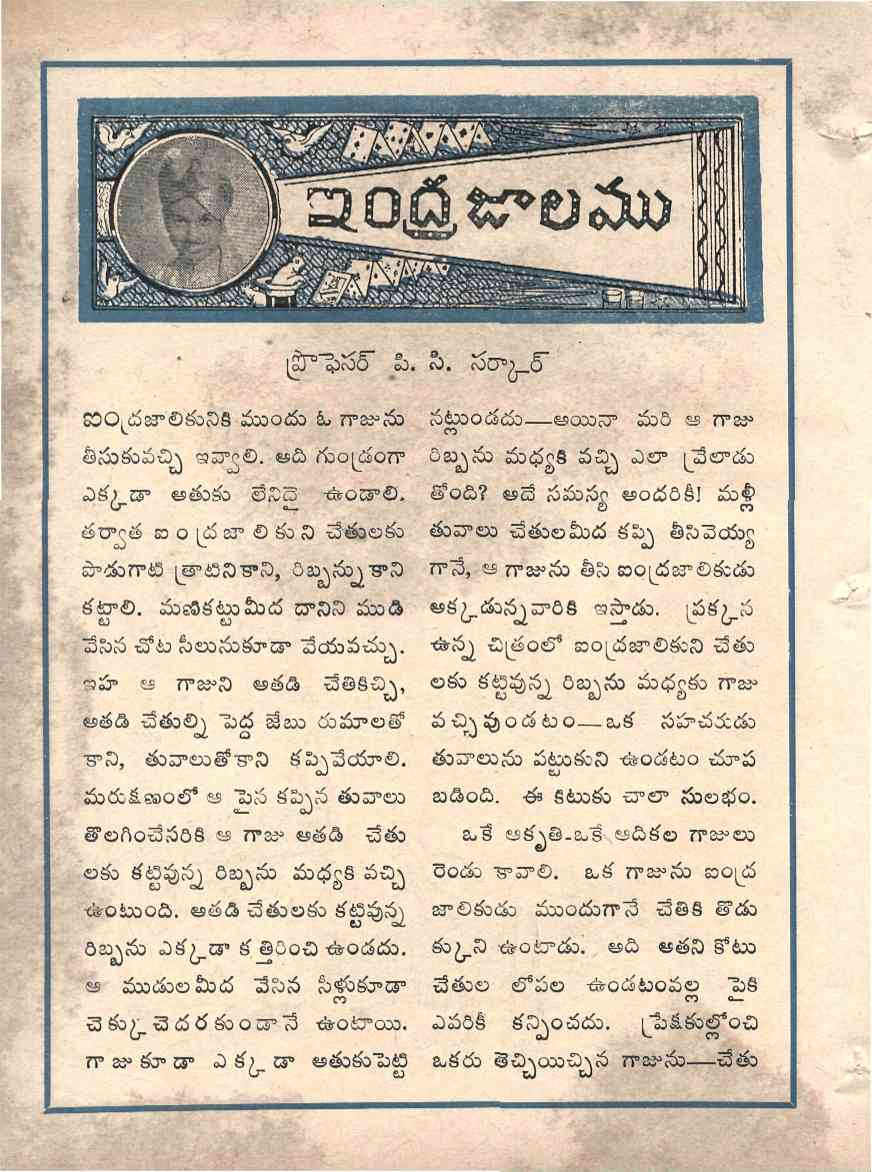 ఇంద్రజాలము
ప్రొఫెసర్ పి. సి. సర్కార్
ఐంద్రజాలికునికి ముందు ఓ గాజును
తీసుకువచ్చి ఇవ్వాలి. అది గుండ్రంగా
ఎక్కడా అతుకు లేనిదై ఉండాలి.
తర్వాత ఐంద్రజాలికుని చేతులకు
పొడుగాటి త్రాటినికాని, రిబ్బన్నుకాని
కట్టాలి. మణికట్టుమీద దానిని ముడి
వేసిన చోట సీలునుకూడా వేయవచ్చు.
ఇహ ఆ గాజుని అతడి చేతికిచ్చి,
అతడి చేతుల్ని పెద్ద జేబు రుమాలతో
కాని, తువాలుతోకాని కప్పివేయాలి.
మరుక్షణంలో ఆ పైన కప్పిన తువాలు
తొలగించేసరికి ఆ గాజు అతడి చేతు
లకు కట్టివున్న రిబ్బను మధ్యకి వచ్చి
ఉంటుంది. అతడి చేతులకు కట్టివున్న
రిబ్బను ఎక్కడా కత్తిరించి ఉండదు.
ఆ ముడులమీద వేసిన సీళ్లుకూడా
చెక్కు చెదరకుండానే ఉంటాయి.
గాజుకూడా ఎక్కడా అతుకుపెట్టి
నట్లుండదు—అయినా మరి ఆ గాజు
రిబ్బను మధ్యకి వచ్చి ఎలా వ్రేలాడు
తోంది? అదే సమస్య అందరికీ! మళ్లీ
తువాలు చేతులమీద కప్పి తీసివెయ్య
గానే, ఆ గాజును తీసి ఐంద్రజాలికుడు
అక్కడున్నవారికి ఇస్తాడు. ప్రక్కన
ఉన్న చిత్రంలో ఐంద్రజాలికుని చేతు
లకు కట్టివున్న రిబ్బను మధ్యకు గాజు
వచ్చివుండటం—ఒక సహచరుడు
తువాలును పట్టుకుని ఉండటం చూప
బడింది. ఈ కిటుకు చాలా సులభం.
ఒకే ఆకృతి-ఒకే ఆదికల గాజులు
రెండు కావాలి. ఒక గాజును ఐంద్ర
జాలికుడు ముందుగానే చేతికి తొడు
క్కుని ఉంటాడు. అది అతని కోటు
చేతుల లోపల ఉండటంవల్ల పైకి
ఎవరికీ కన్పించదు. ప్రేక్షకుల్లోంచి
ఒకరు తెచ్చియిచ్చిన గాజును—చేతు